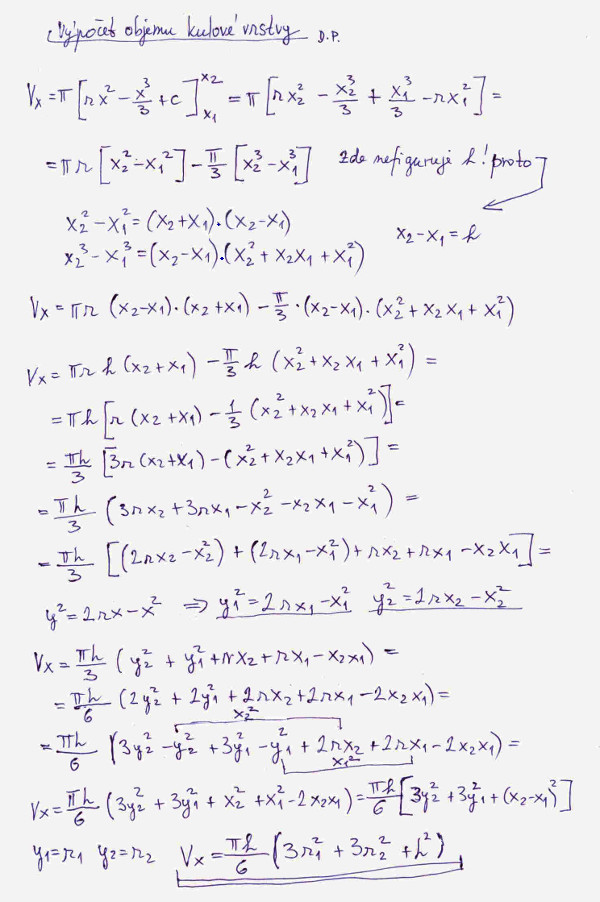 Výpočet objemu kulové vrstvy D.P.
Vx = π [rx² − x³/3 + c]ₓ₁ˣ² = π [rx₂² − x₂³/3 + x₁³/3 − rx₁²] =
= πr [x₂² − x₁²] − π/3 [x₂³ − x₁³] zde nefiguruje h! proto
x₂² − x₁² = (x₂+x₁)·(x₂−x₁)
x₂ − x₁ = h
x₂³ − x₁³ = (x₂−x₁)·(x₂² + x₂x₁ + x₁²)
Vx = πr (x₂−x₁)·(x₂+x₁) − π/3·(x₂−x₁)·(x₂² + x₂x₁ + x₁²)
Vx = πr h (x₂+x₁) − π/3 h (x₂² + x₂x₁ + x₁²) =
= πh [r (x₂+x₁) − 1/3 (x₂² + x₂x₁ + x₁²)] =
= πh/3 [3r (x₂+x₁) − (x₂² + x₂x₁ + x₁²)] =
= πh/3 (3rx₂ + 3rx₁ − x₂² − x₂x₁ − x₁²) =
= πh/3 [(2rx₂ − x₂²) + (2rx₁ − x₁²) + rx₂ + rx₁ − x₂x₁] =
y² = 2rx − x² ⇒ y₁² = 2rx₁ − x₁² y₂² = 2rx₂ − x₂²
Vx = πh/3 (y₂² + y₁² + rx₂ + rx₁ − x₂x₁) =
= πh/6 (2y₂² + 2y₁² + 2rx₂ + 2rx₁ − 2x₂x₁) =
x₂²
= πh/6 (3y₂² − y₂² + 3y₁² − y₁² + 2rx₂ + 2rx₁ − 2x₂x₁) =
x₁²
Vx = πh/6 (3y₂² + 3y₁² + x₂² + x₁² − 2x₂x₁) = πh/6 [3y₂² + 3y₁² + (x₂−x₁)²]
y₁ = r₁ y₂ = r₂ Vx = πh/6 (3r₁² + 3r₂² + h²)